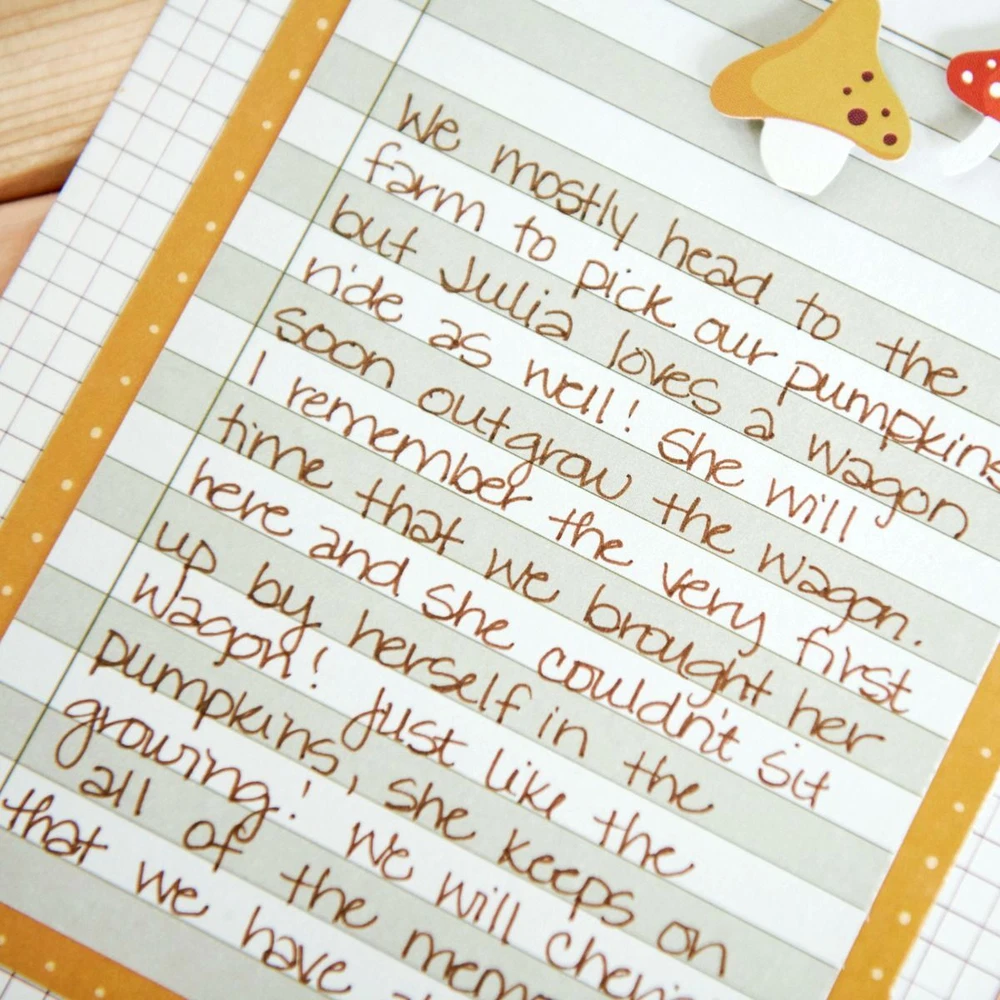 We mostly head to the
farm to pick our pumpkins
but Julia loves a wagon
ride as well! She will
soon outgrow the wagon.
I remember the very first
time that we brought her
here and she couldn't sit
up by herself in the
wagon! Just like the
pumpkins, she keeps on
growing! We will
all of the
that we have